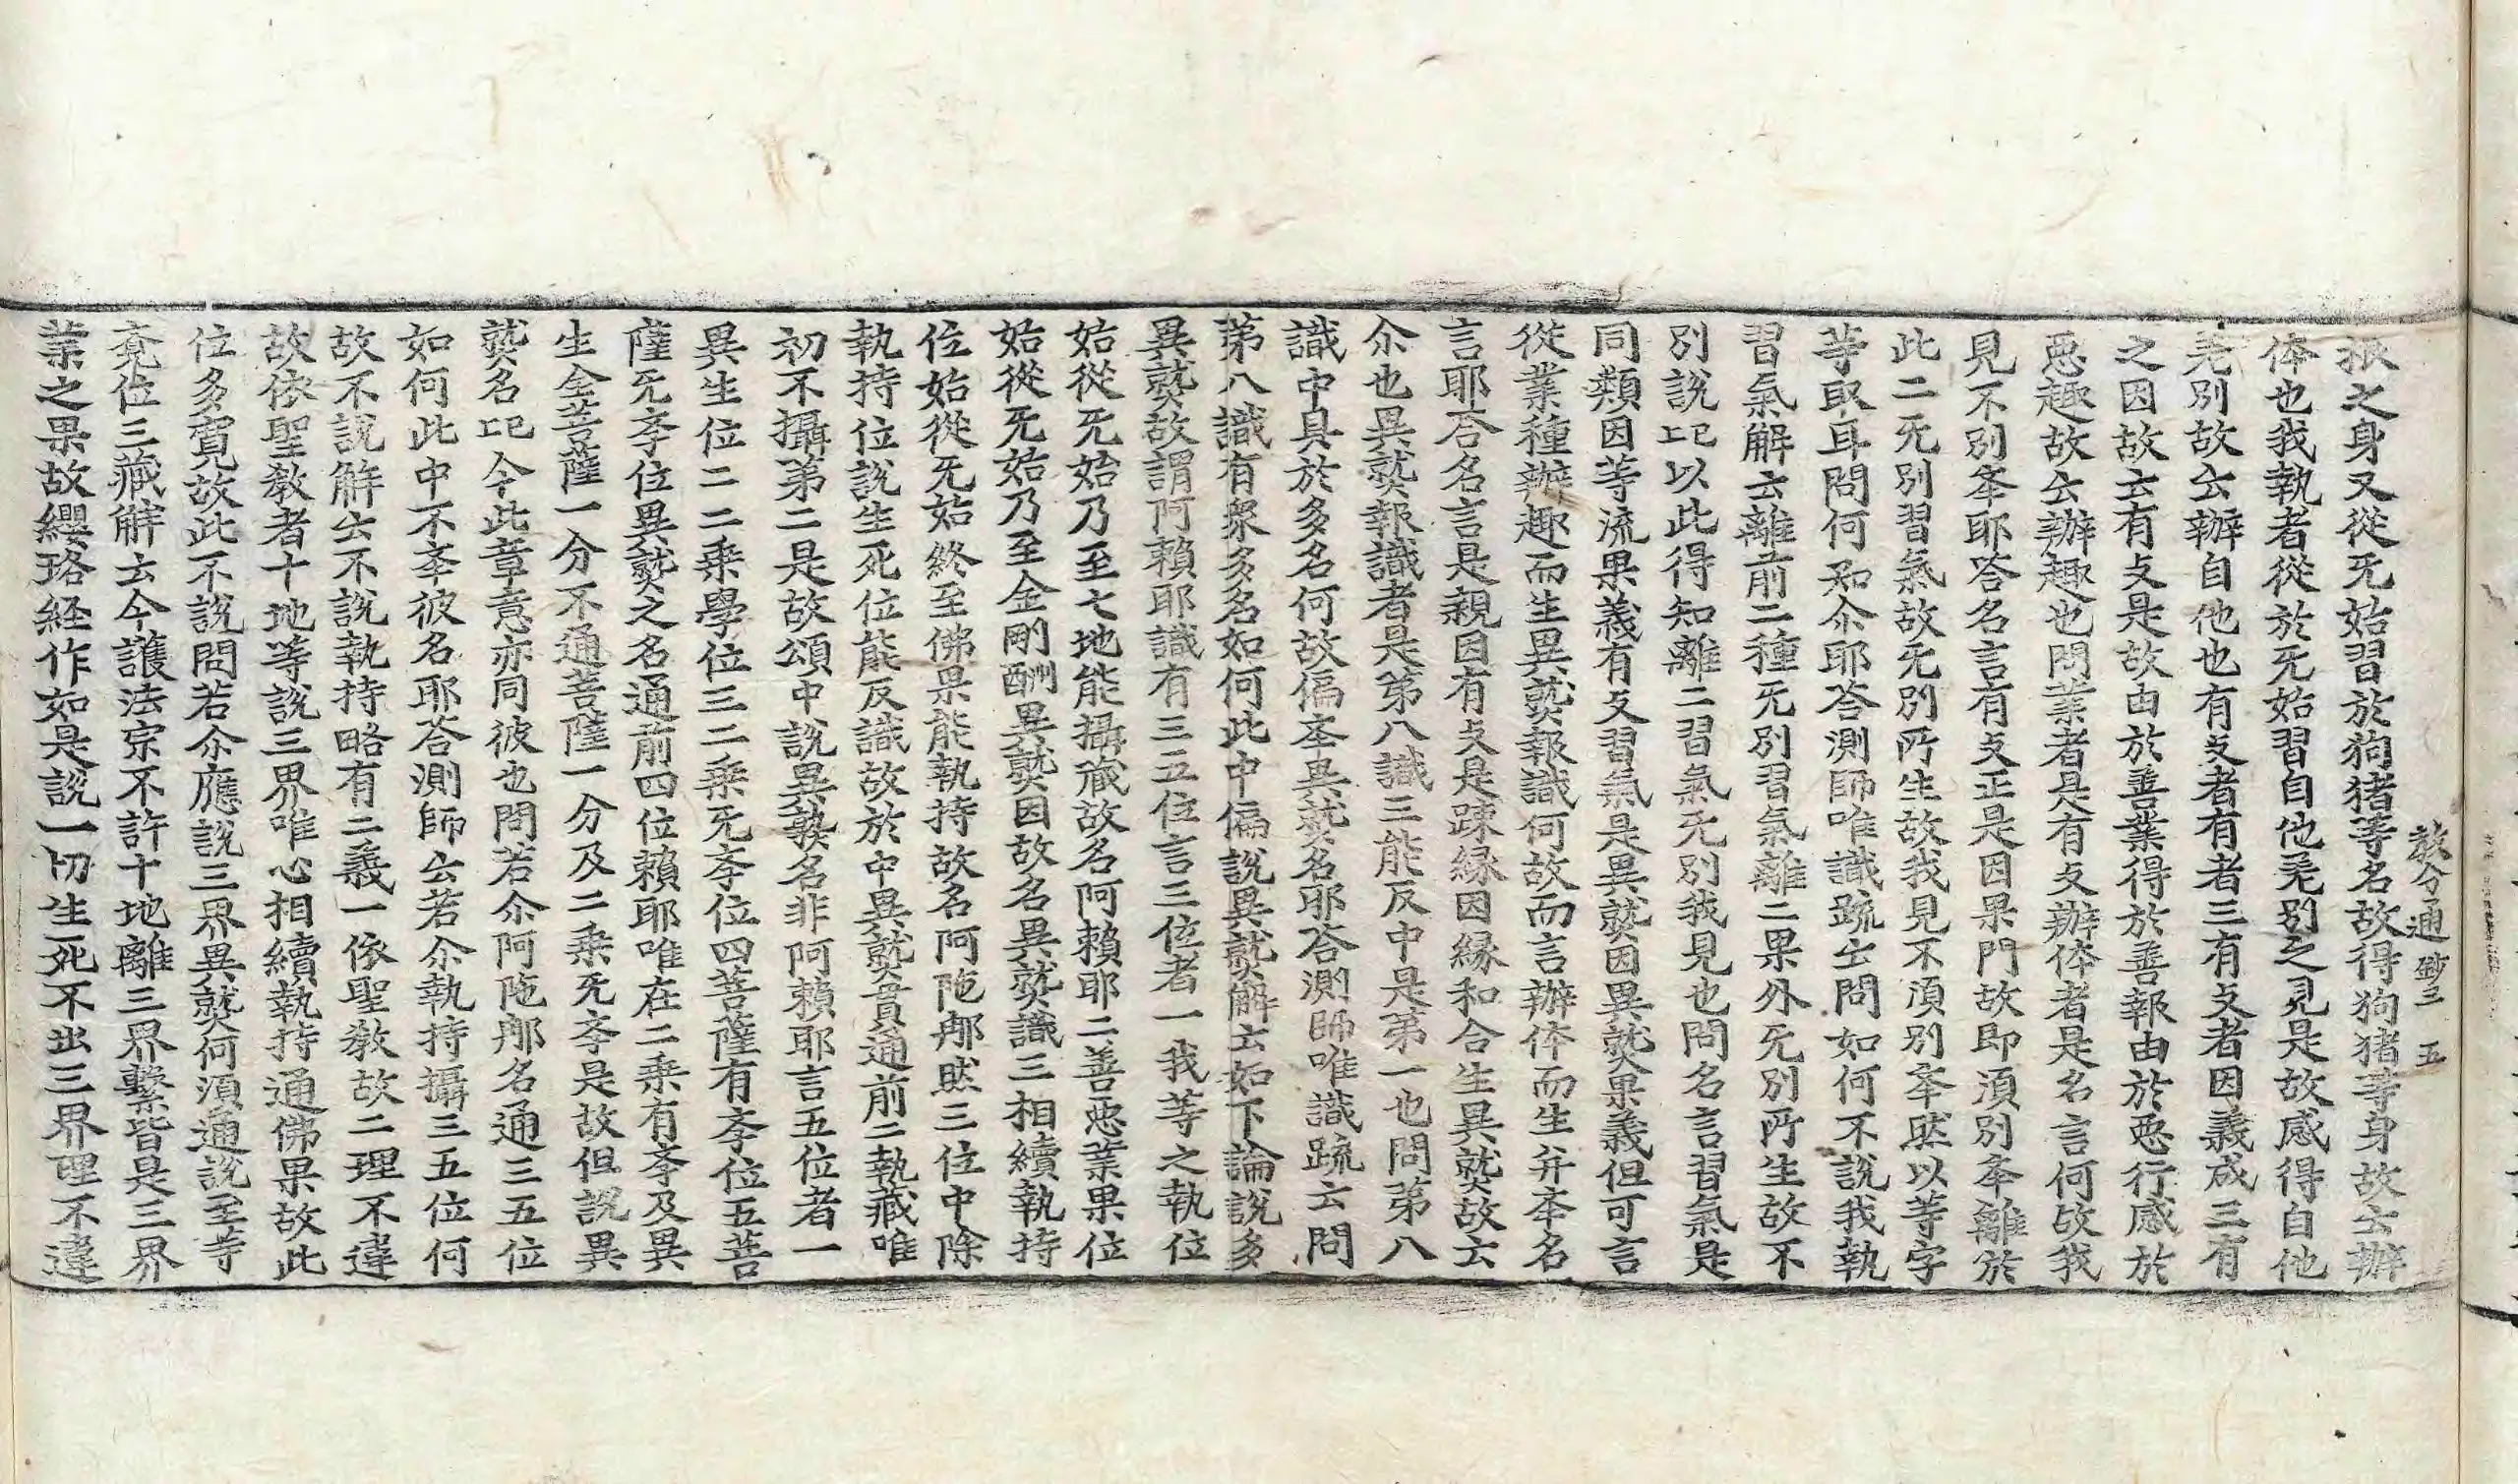 教分通鈔三 五
狐之身又從无始習於狗猪等名故得狗猪等身故云辦
体也我執者從於无始習自他差別之見是故感得自他
差別故云辦自他也有支者有者三有支者因義成三有
之因故云有支是故由於善業得於善報由於悪行感於
悪趣故云辦趣也問業者是有支辦体者是名言何故我
見不別夲耶荅名言有支正是因果門故即湏別夲離於
此二无別習氣故无別所生故我見不湏別夲然以等字
等取耳問何知尒耶荅測師唯識疏云問如何不說我執
習氣解云離前二種无別習氣離二果外无別所生故不
別說已以此得知離二習氣无別我見也問名言習氣是
同類因等流果義有支習氣是異熟因異熟果義但可言
從業種辦趣而生異熟報識何故而言辦体而生并夲名
言耶荅名言是親因有支是踈縁因縁和合生異熟故云
尒也異熟報識者是第八識三能反中是第一也問第八
識中具於多名何故偏夲異熟名耶荅測師唯識疏云問
第八識有衆多名如何此中偏說異熟解云如下論說多
異熟故謂阿頼耶識有三五位言三位者一我等之執位
始從无始乃至七地能攝藏故名阿賴耶二善悪業果位
始從无始乃至金剛酬異熟因故名異熟識三相續執持
位始從无始終至佛果能執持故名阿陁郍然三位中除
執持位說生死位能反識故於中異熟貫通前二執藏唯
初不攝第二是故頌中說異熟名非阿賴耶言五位者一
異生位二二乗學位三二乗无斈位四菩薩有斈位五菩
薩无斈位異熟之名通前四位賴耶唯在二乗有斈及異
生全菩薩一分不通菩薩一分及二乗无斈是故但說異
熟名已今此章意亦同彼也問若尒阿陁郍名通三五位
如何此中不夲彼名耶荅測師云若尒執持攝三五位何
故不說解云不說執持略有二義一依聖敎故二理不違
故依聖敎者十地等說三界唯心相續執持通佛果故此
位多寛故此不說問若尒應說三界異熟何湏通說至等
竟位三藏解云今護法宗不許十地離三界繋皆是三界
業之果故纓珞経作如是說一切生死不出三界理不違